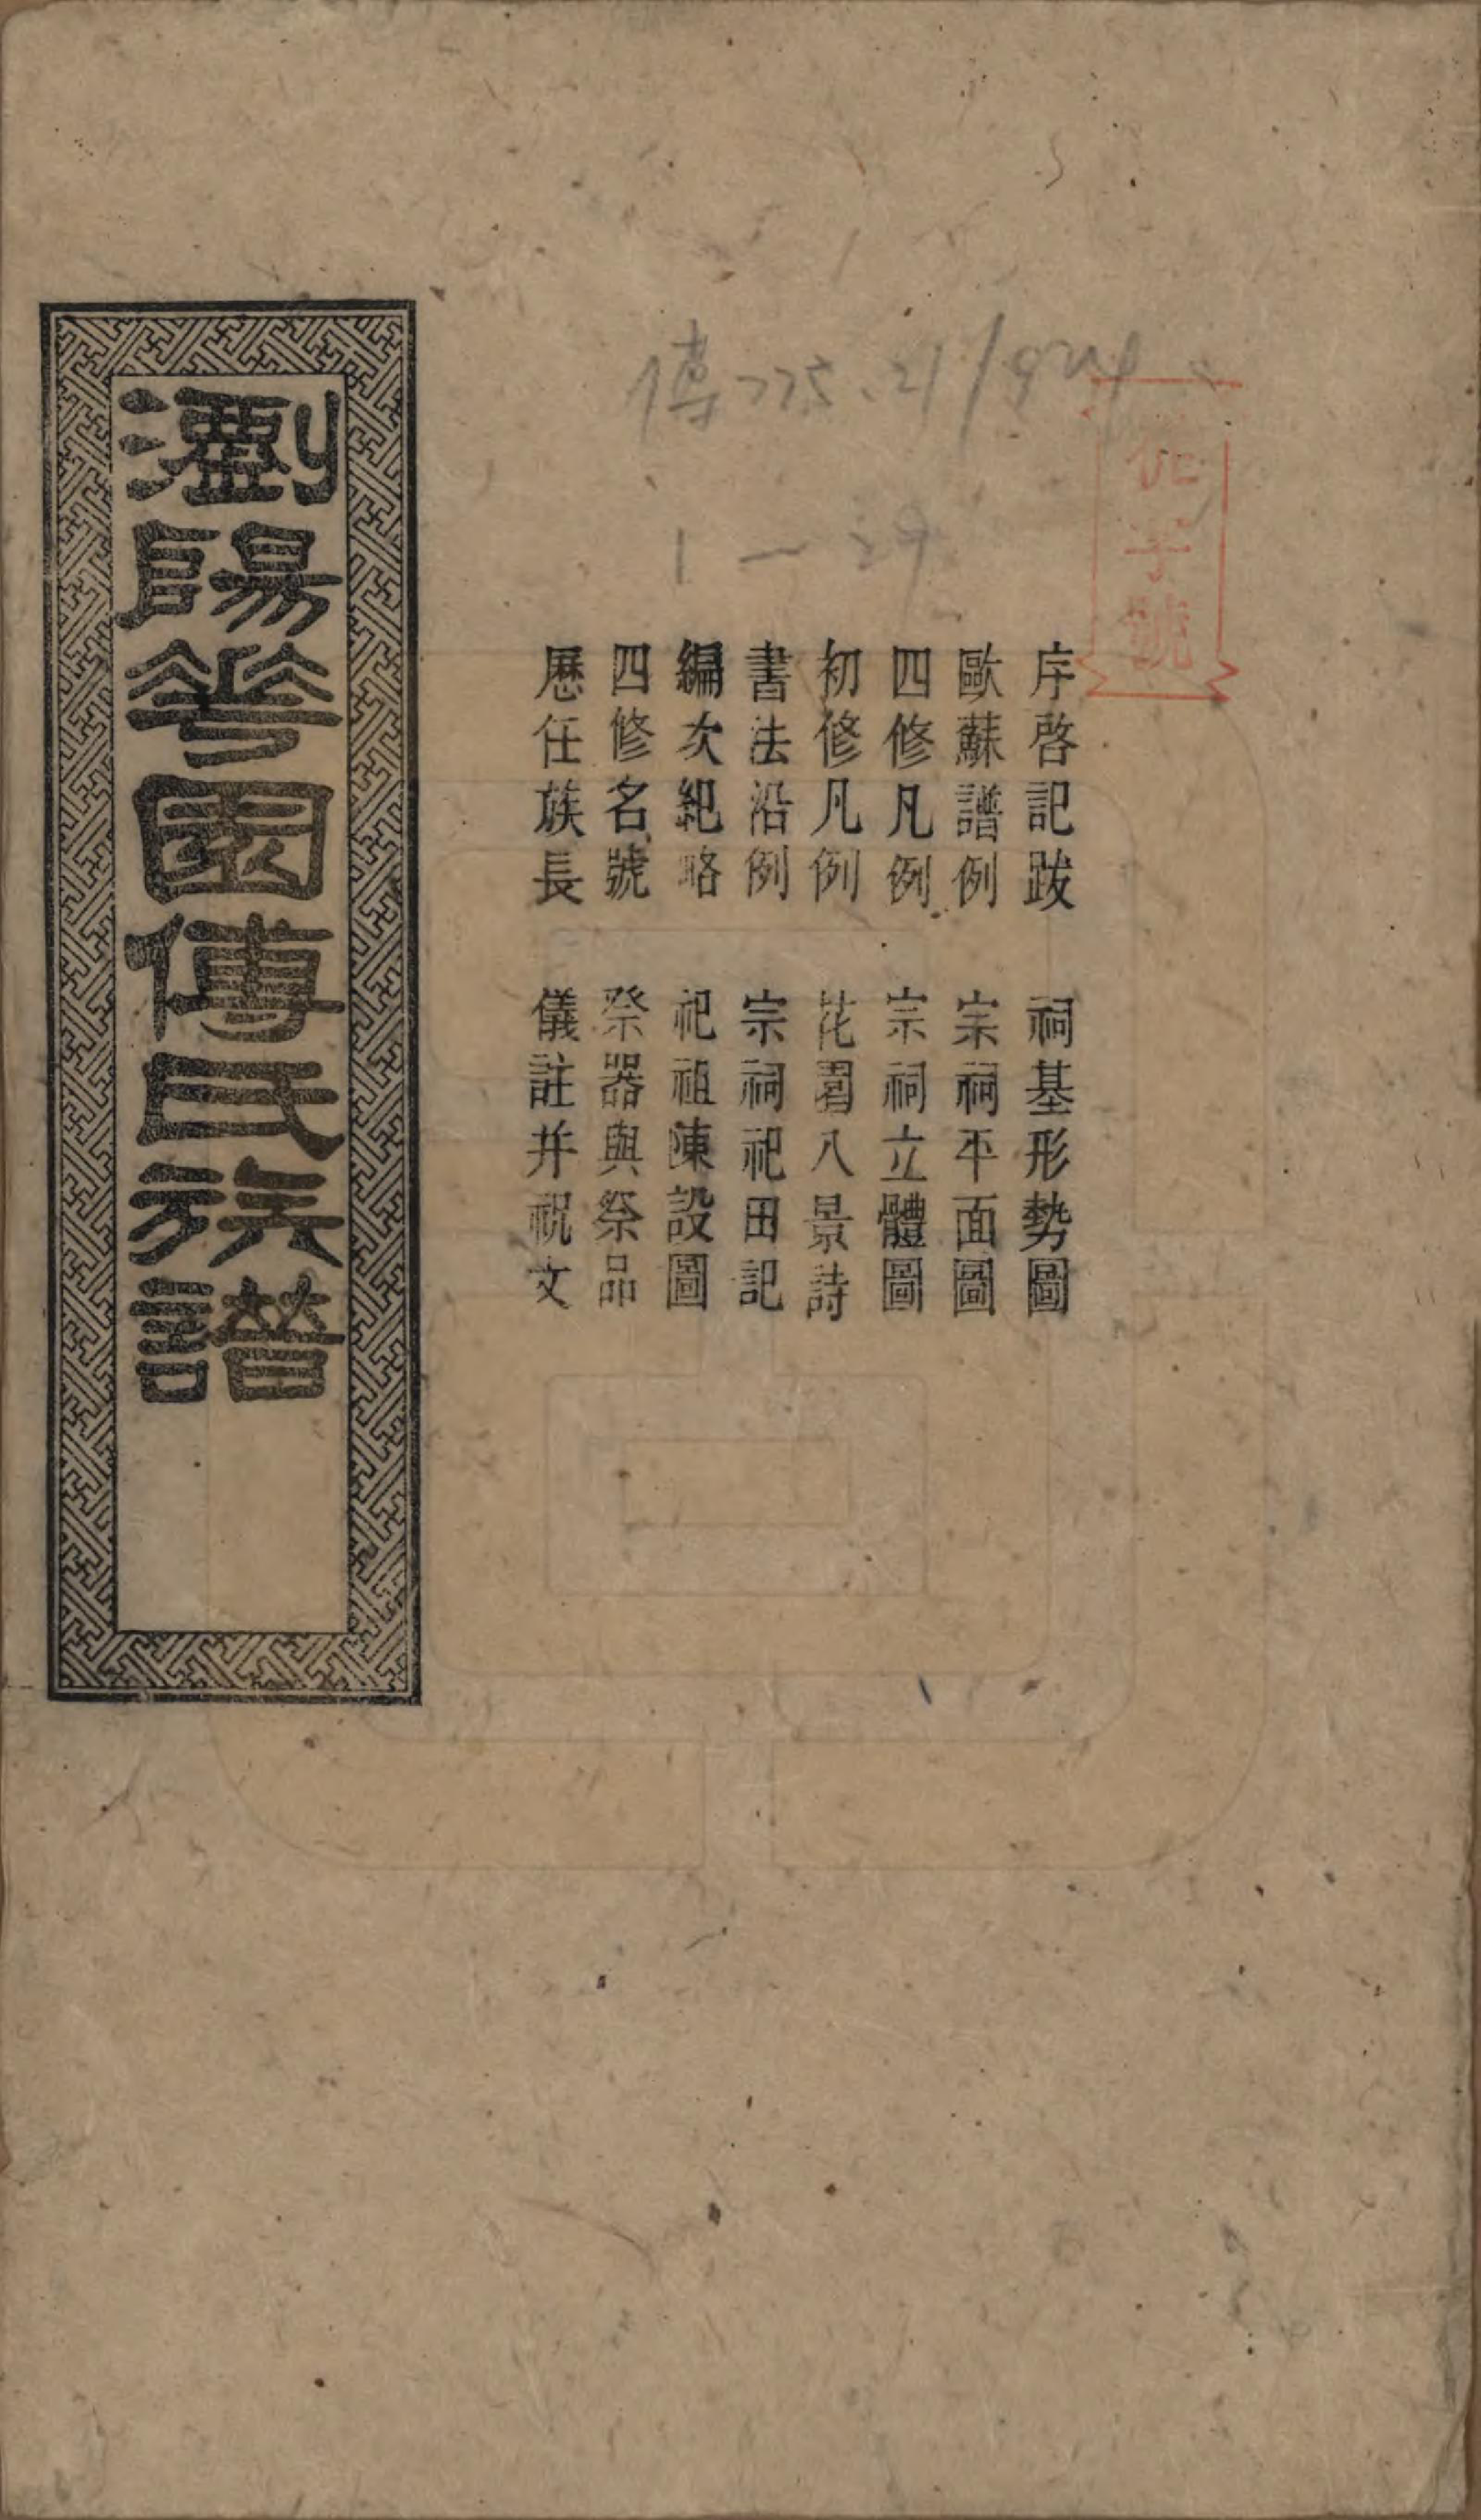 傅 775.21/924
1—29
字號
序啓記跋 祠基形勢圖
歐蘇譜例 宗祠平面圖
四修凡例 宗祠立體圖
初修凡例 花園八景詩
書法沿例 宗祠祀田記
編次紀略 祀祖陳設圖
四修名號 祭器與祭品
歷任族長 儀註并祝文
瀏陽華園傅氏族譜